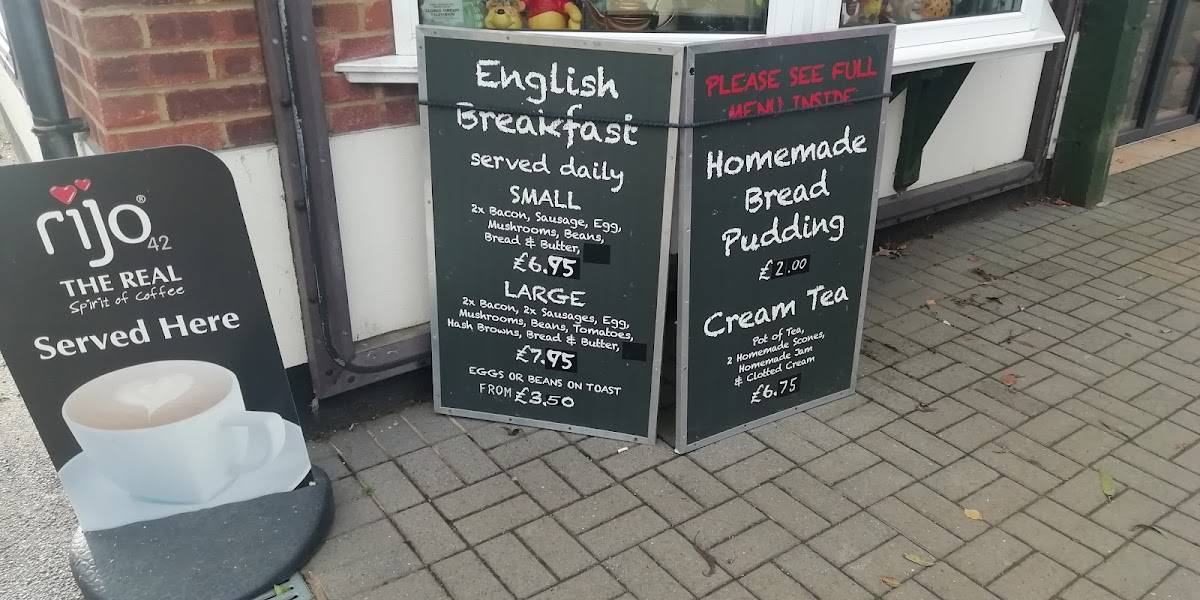 rijo® 42
THE REAL
Spirit of Coffee
Served Here
English
Breakfast
served daily
SMALL
2x Bacon, Sausage, Egg,
Mushrooms, Beans,
Bread & Butter,
£6.95
LARGE
2x Bacon, 2x Sausages, Egg,
Mushrooms, Beans, Tomatoes,
Hash Browns, Bread & Butter,
£7.95
EGGS OR BEANS ON TOAST
FROM £3.50
PLEASE SEE FULL
MENU INSIDE
Homemade
Bread
Pudding
£2.00
Cream Tea
Pot of Tea,
2 Homemade Scones,
Homemade Jam
& Clotted Cream
£6.75